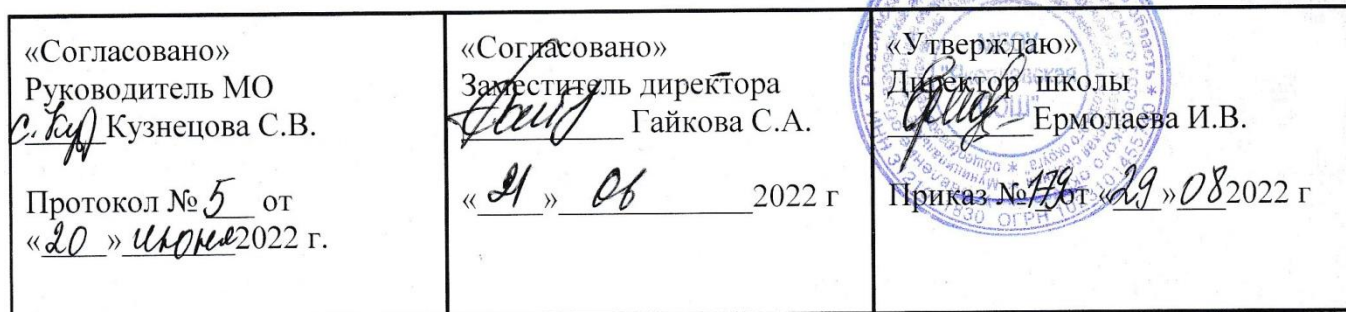 «Согласовано»
Руководитель МО
С. Куз Кузнецова С.В.
Протокол № 5 от
«20» июня 2022 г.
«Согласовано»
Заместитель директора
Гайкова С.А.
«21» 06 2022 г
«Утверждаю»
Директор школы
Ермолаева И.В.
Приказ №179 от «29» 08 2022 г